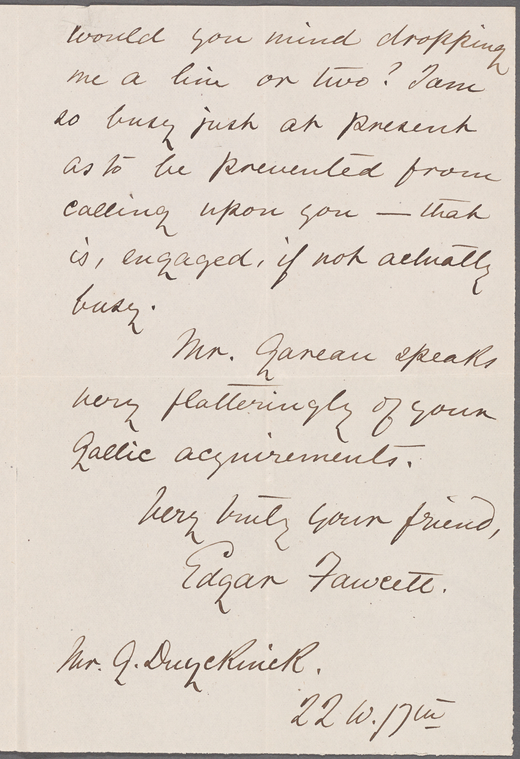 would you mind dropping
me a line or two? I am
so busy just at present
as to be prevented from
calling upon you — that
is, engaged, if not actually
busy.
Mr. Gareau speaks
very flatteringly of your
Gallic acquirements.
Very truly your friend,
Edgar Fawcett.
Mr. G. Duyckinck.
22 W. 17th